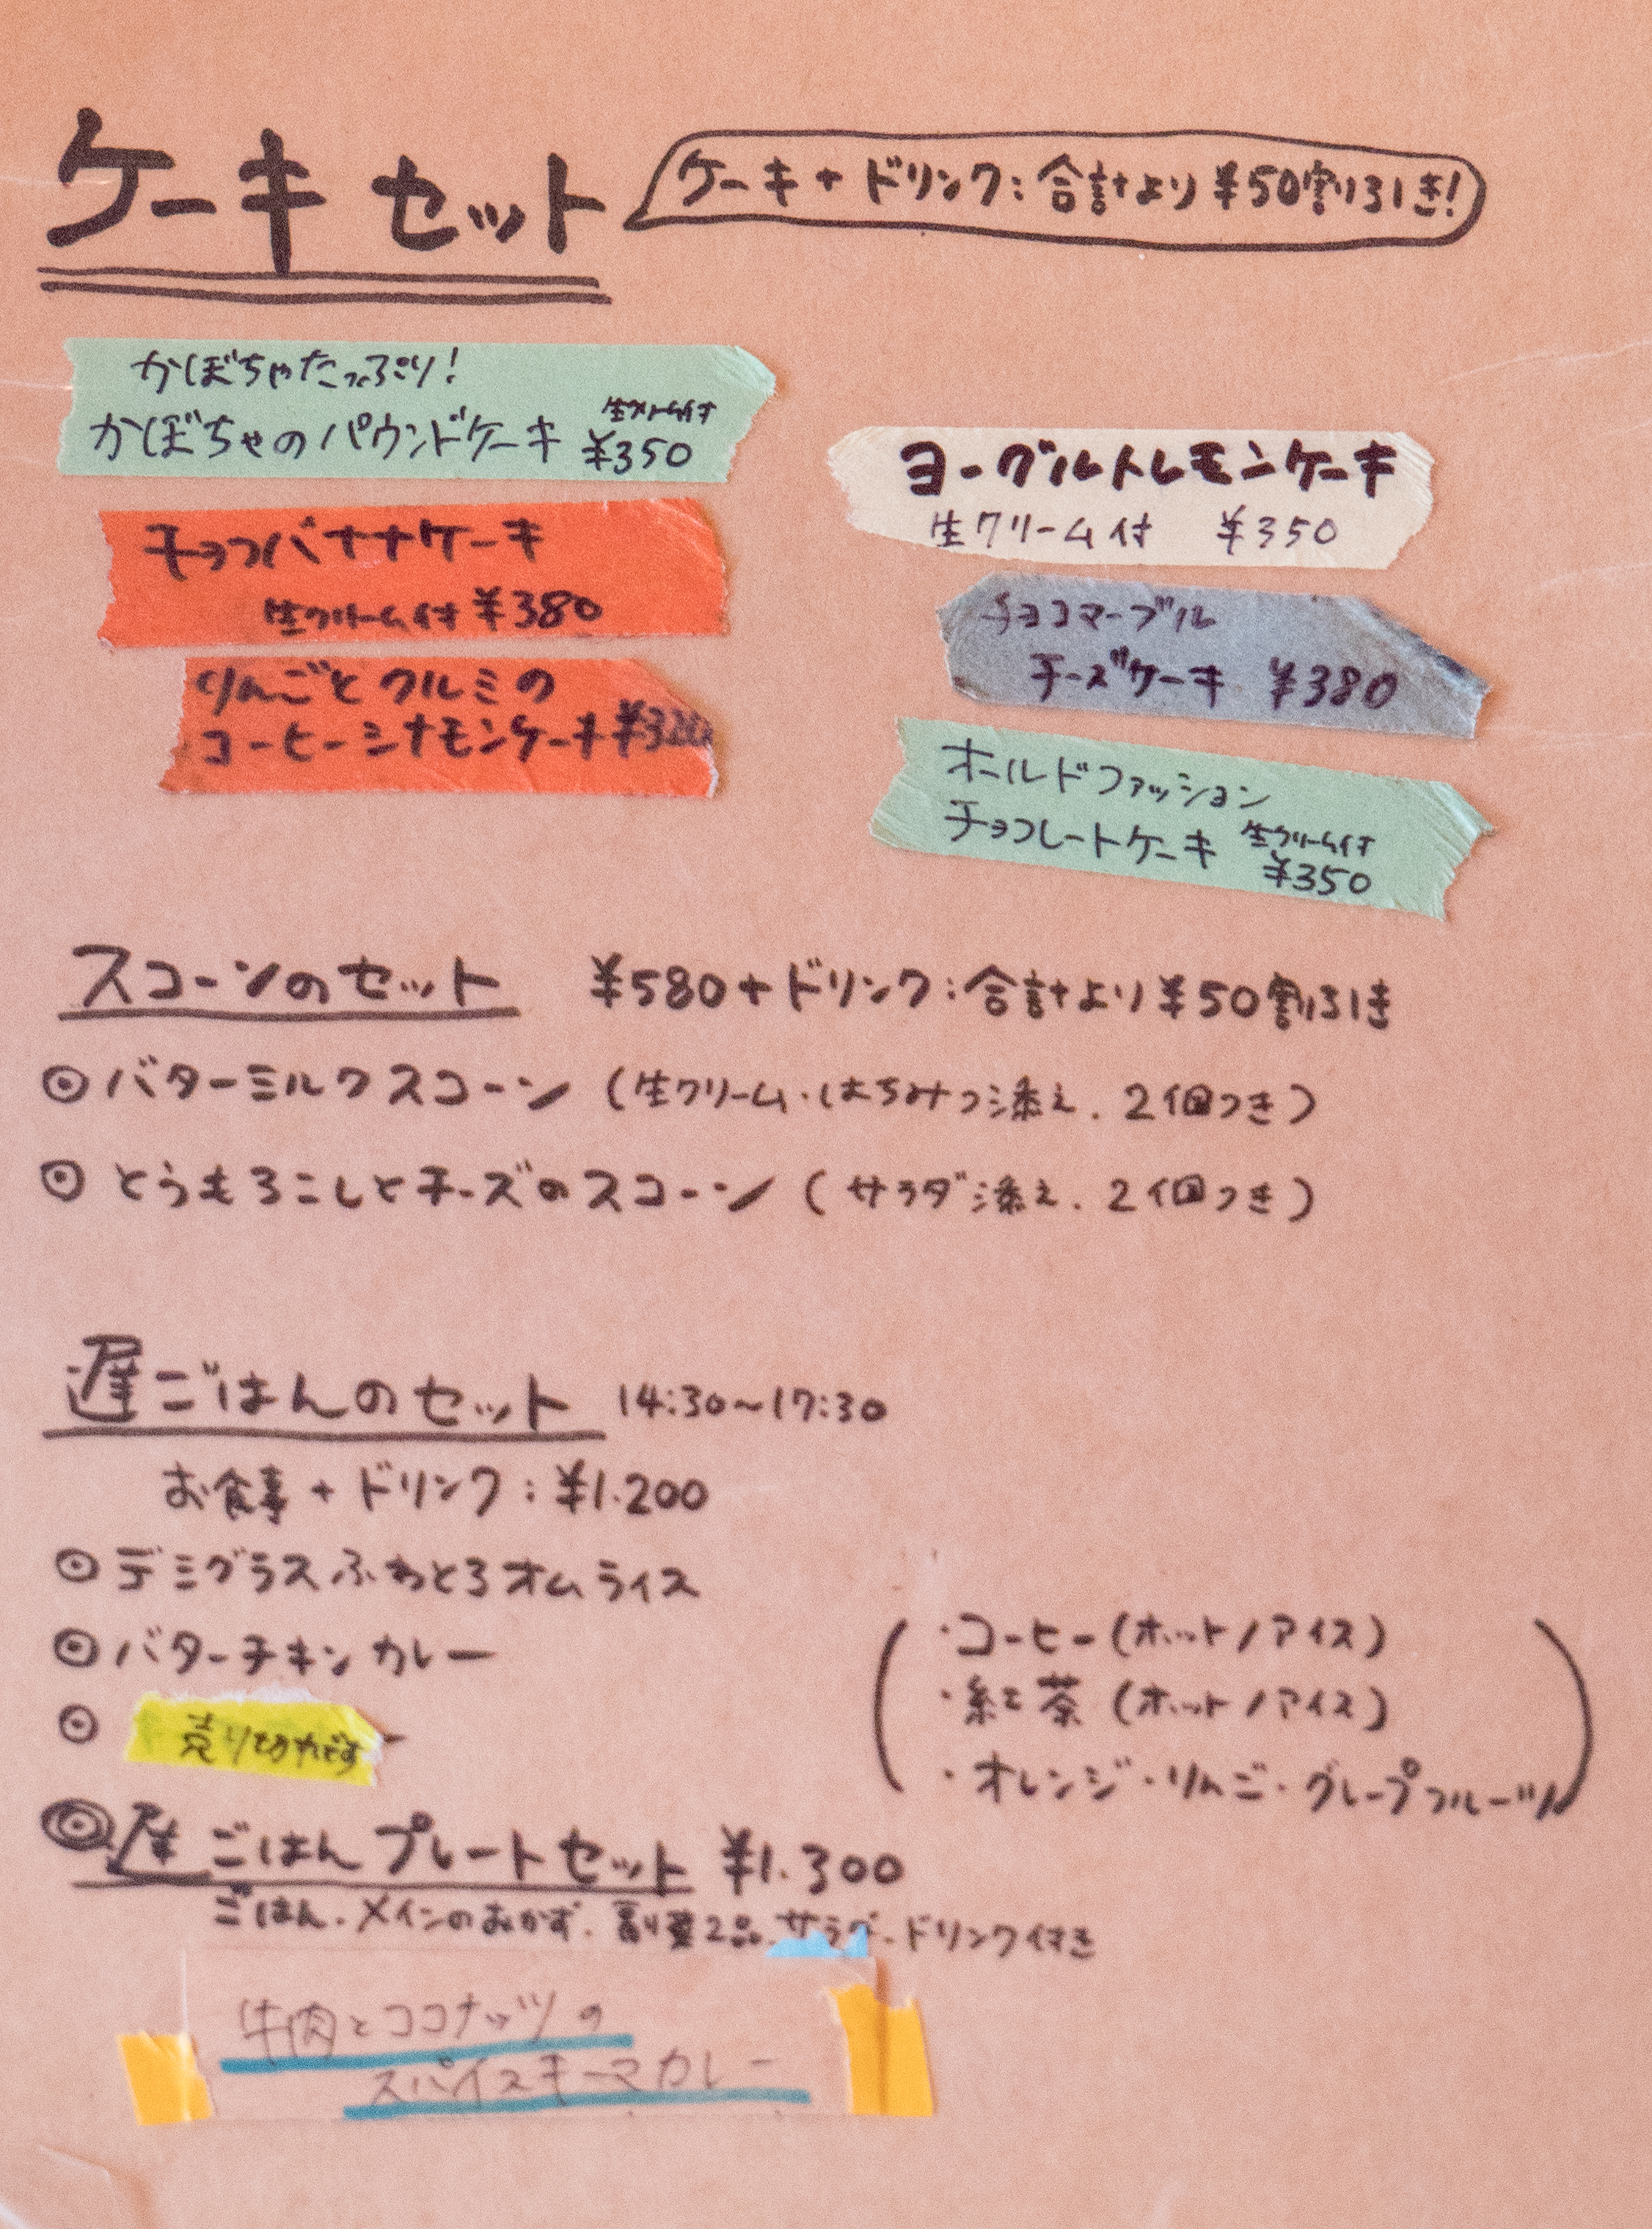 ケーキセット
ケーキ+ドリンク:合計より¥50割引き!
かぼちゃたっぷり!
かぼちゃのパウンドケーキ 生クリーム付 ¥350
チョコバナナケーキ
生クリーム付 ¥380
りんごとクルミの
コーヒーシナモンケーキ
ヨーグルトレモンケーキ
生クリーム付 ¥350
チョコマーブル
チーズケーキ ¥380
オールドファッション
チョコレートケーキ 生クリーム付
¥350
スコーンのセット ¥580+ドリンク:合計より¥50割引き
◎バターミルクスコーン(生クリーム・はちみつ添え.2個つき)
◎とうもろこしとチーズのスコーン(サラダ添え.2個つき)
遅ごはんのセット 14:30〜17:30
お食事+ドリンク:¥1.200
◎デミグラスふわとろオムライス
◎バターチキンカレー
◎売り切れです
・コーヒー(ホット/アイス)
・紅茶(ホット/アイス)
・オレンジ・りんご・グレープフルーツ
◎ ごはんプレートセット ¥1.300
ごはん.メインのおかず.副菜2品.サラダ.ドリンク付き
牛肉とココナッツの
スパイスキーマカレー